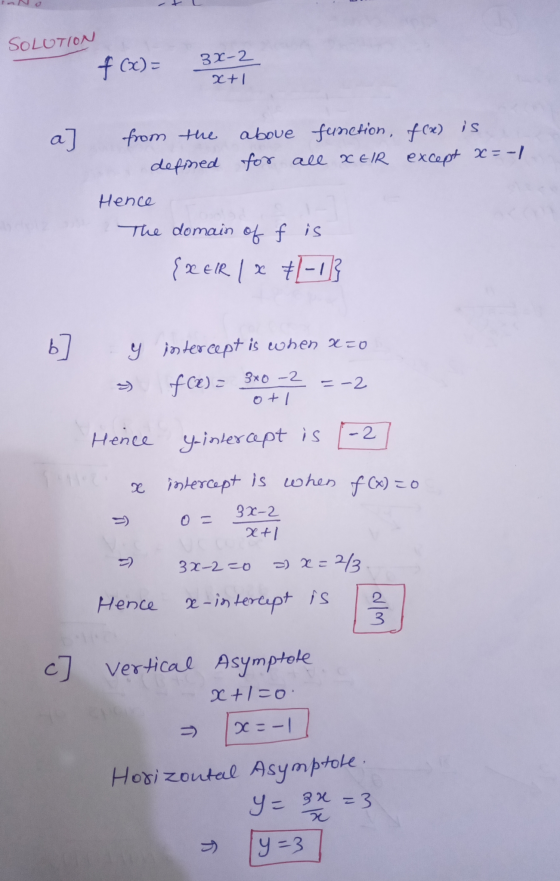 SOLUTION
f(x) = 3x-2 / x+1
a] from the above function, f(x) is
defined for all x∈IR except x=-1
Hence
The domain of f is
{x∈IR | x ≠ -1}
b] y intercept is when x=0
⇒ f(x) = 3×0-2 / 0+1 = -2
Hence y-intercept is -2
x intercept is when f(x)=0
⇒ 0 = 3x-2 / x+1
⇒ 3x-2=0 ⇒ x=2/3
Hence x-intercept is 2/3
c] Vertical Asymptote
x+1=0.
⇒ x=-1
Horizontal Asymptote.
y = 3x/x = 3
⇒ y=3